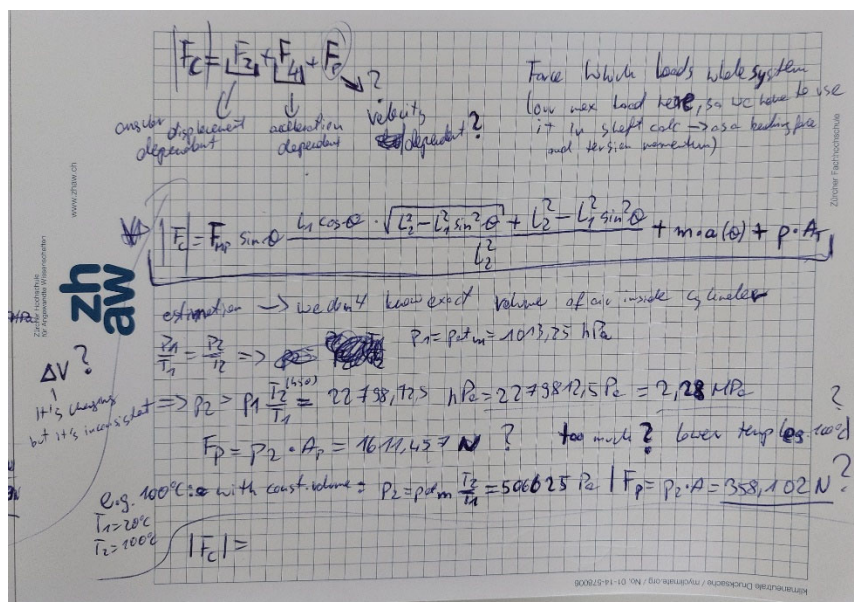 |Fc| = F2 + F4 + Fp
?
angular displacement dependent
acceleration dependent
velocity dependent?
Force which loads whole system
(our max load here, so we have to use
it in shaft calc → as a bending force
and torsion momentum)
|Fc| = Fmp sin θ (L1 cos θ · √(L2² − L1² sin² θ) + L2² − L1² sin² θ) / L2² + m·a(θ) + p·AT
estimation → we don't know exact volume of air inside cylinder
P1/T1 = P2/T2 =>
p1 = patm = 1013,25 hPa
ΔV?
It's changing
but it's inconsistent
=> p2 = p1 T2(450)/T1 = 22798,125 hPa = 2279812,5 Pa = 2,28 MPa
Fp = p2 · Ap = 1611,457 N ?
too much? lower temp eg. 100°C ?
e.g. 100°C: with const. volume = p2 = patm T2/T1 = 506625 Pa | Fp = p2·A = 358,102 N ?
T1 = 20°C
T2 = 100°C
|Fc| =
www.zhaw.ch
Zürcher Fachhochschule
zh
aw
Zürcher Hochschule
für Angewandte Wissenschaften
klimaneutrale Drucksache / myclimate.org / No. 01-14-578006